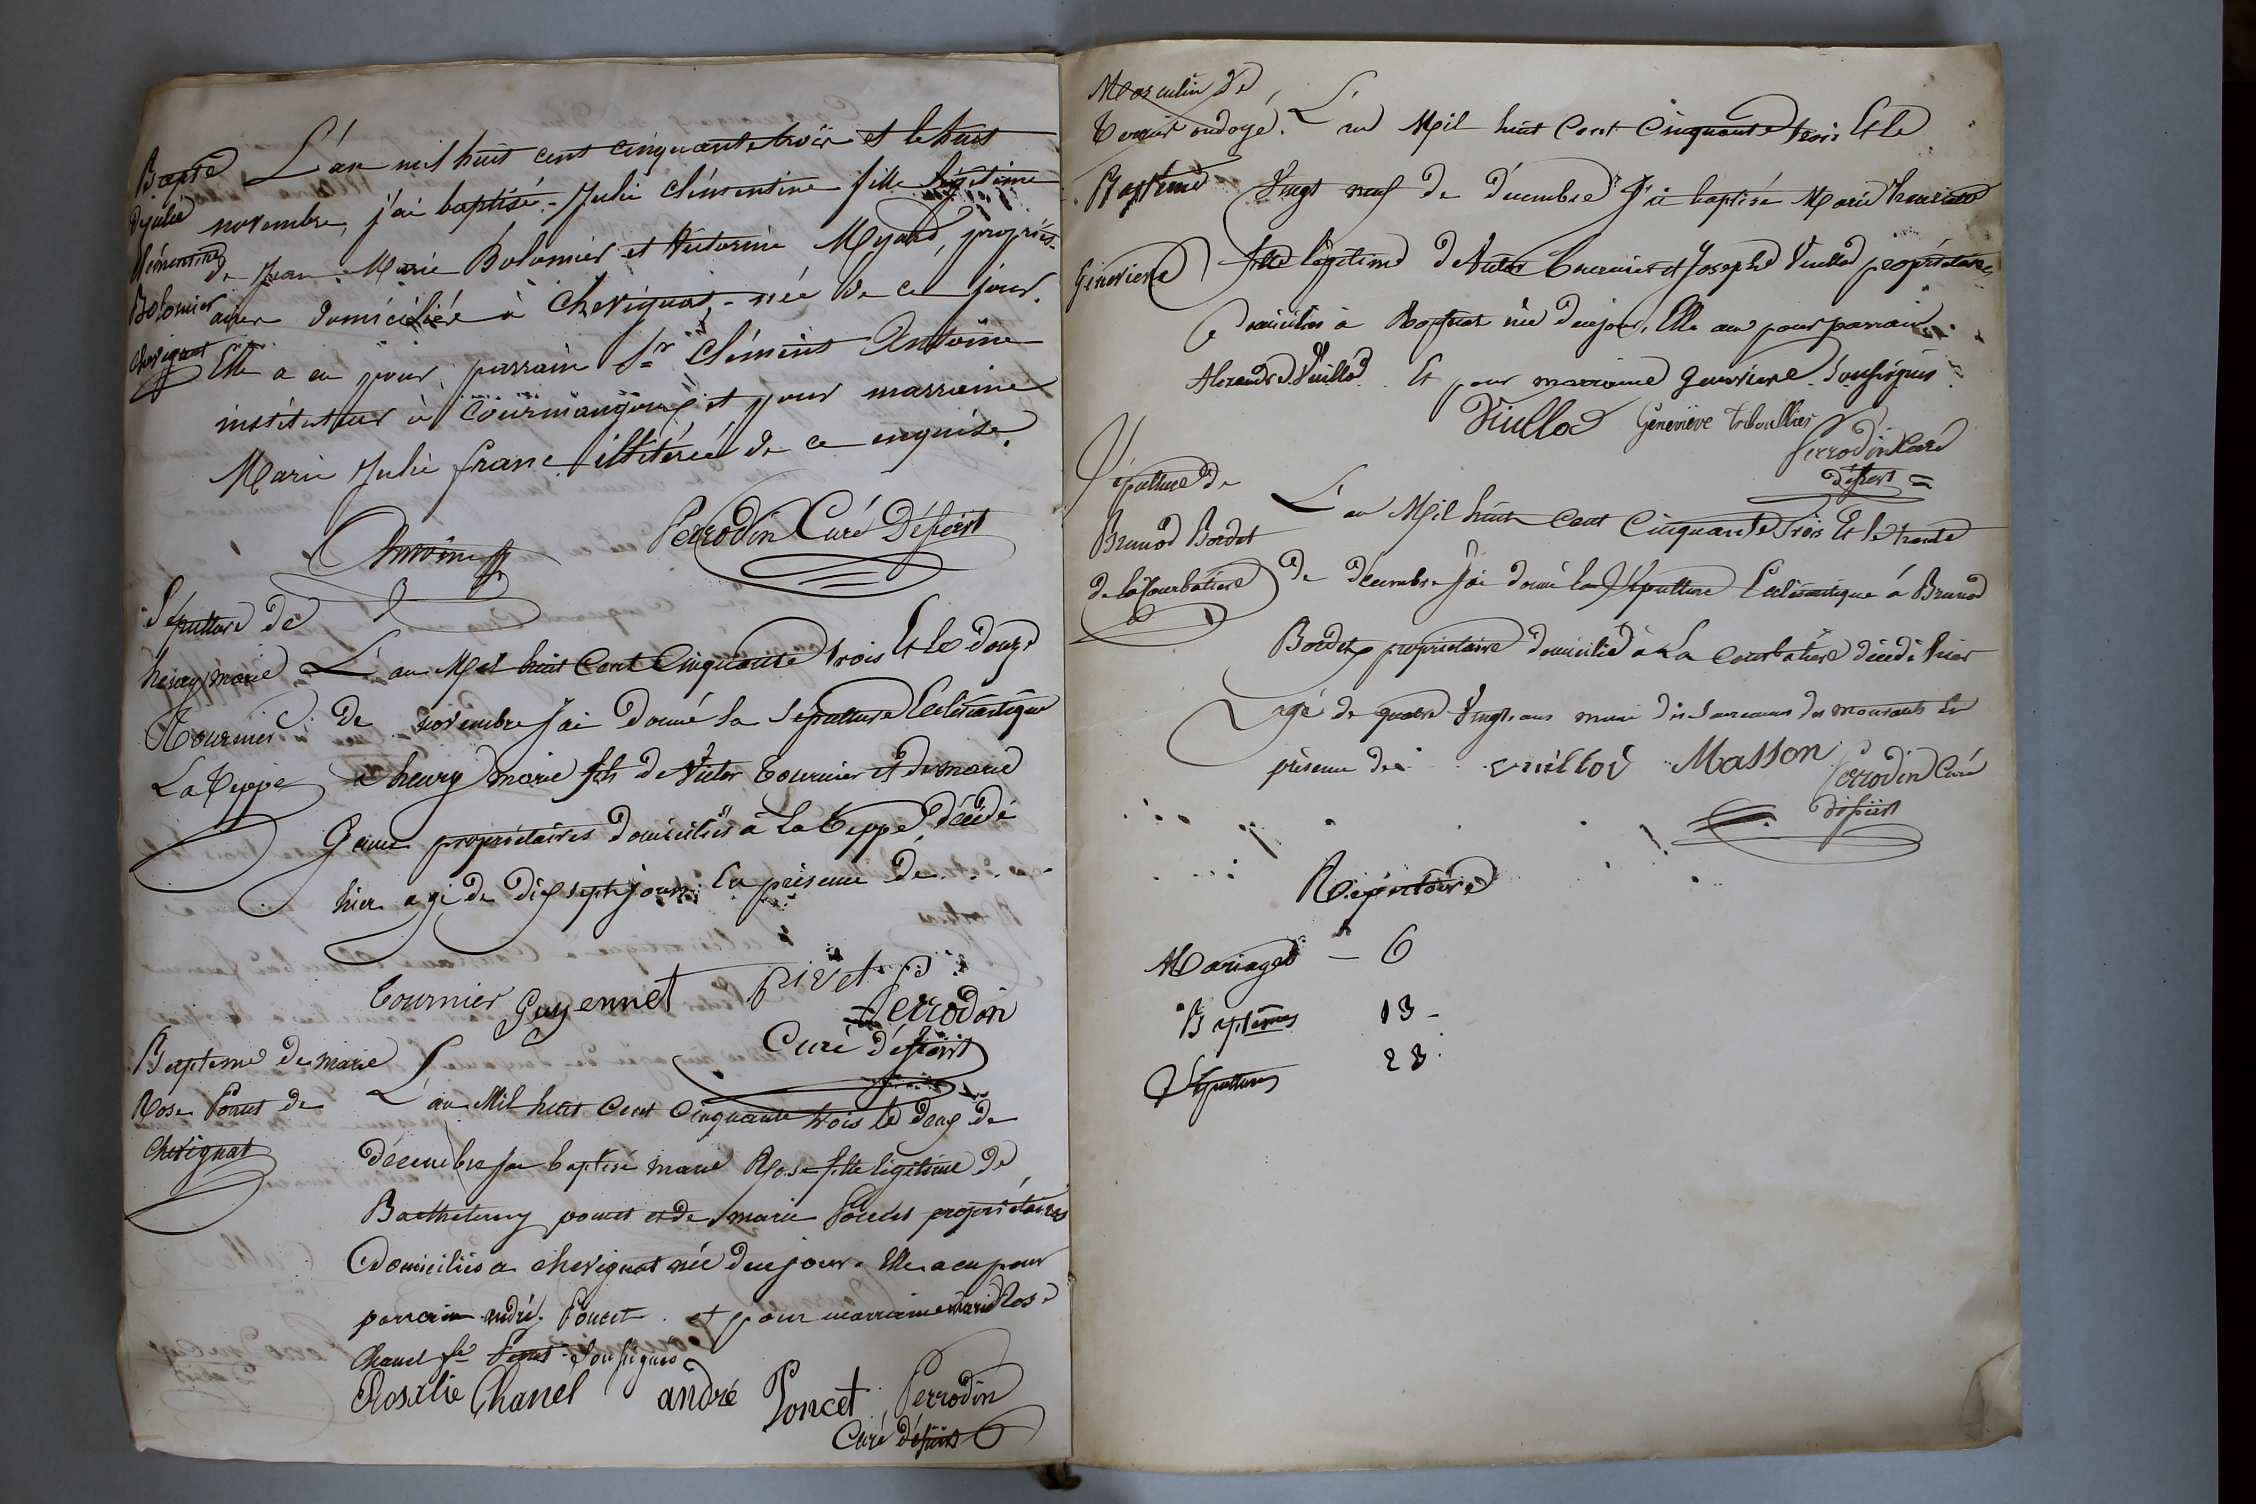 Bapte
de julie
Clémentine
Bolomier
chevignat
L'an mil huit cent cinquante trois et le huit
novembre, j'ai baptisé Julie Clémentine fille légitime
de Jean Marie Bolomier et Victorine Myard, propriét-
aires domiciliés à Chevignat, née de ce jour.
Elle a eu pour parrain Sr Clément Antoine
instituteur à Courmangoux et pour marraine
Marie Julie franc illitérée de ce enquise.
Antoine
Perrodin Curé Déssert
Sépulture de
henry marie
Tournier
La Teppe
L'an Mil huit Cent Cinquante trois Et le douze
de novembre J'ai donné la sépulture Ecclésiastique
a henry marie fils de Victor Tournier et de marie
propriétaires domiciliés à La Teppe décédé
hier agé de dix sept jours. En présence de . . . .
Tournier Guyennet pivet
Perrodin
Curé
Bapteme de marie
Rose Poncet de
chevignat
L'an Mil huit Cent Cinquante trois le deux de
décembre J'ai baptisé marie Rose fille légitime de
Barthelemy poncet et de marie propriétaires
Domiciliés a chevignat née du jour. Elle a eu pour
parrain andré Poncet et pour marraine marie Rose
Chanel soussignés
Rosalie Chanel andré Poncet Perrodin
Curé
Masculin de
Tournier ondoyé.
Baptême
Geneviève
L'an Mil huit Cent Cinquante trois Et le
Vingt neuf de décembre J'ai baptisé Marie
fille légitime de Victor et Joseph Vuillod propriétaires
domiciliés à née du jour, Elle a eu pour parrain
Alexandre Vuillod Et pour marraine Geneviève Soussignés
Viullod Geneviève tribouillier
Perrodin Curé
Sépulture de
Brunod Bordet
de la Courbatiere
L'an Mil huit Cent Cinquante trois Et le trente
de décembre J'ai donné la Sépulture Ecclésiastique à Brunod
Bordet propriétaire domicilié à La Courbatiere décédé hier
agé de quatre Vingt ans muni des Sacremens des mourants En
présence de vuillod Masson Perrodin Curé
Répertoire
Mariages — 6
Baptêmes 13 -
Sépultures 23